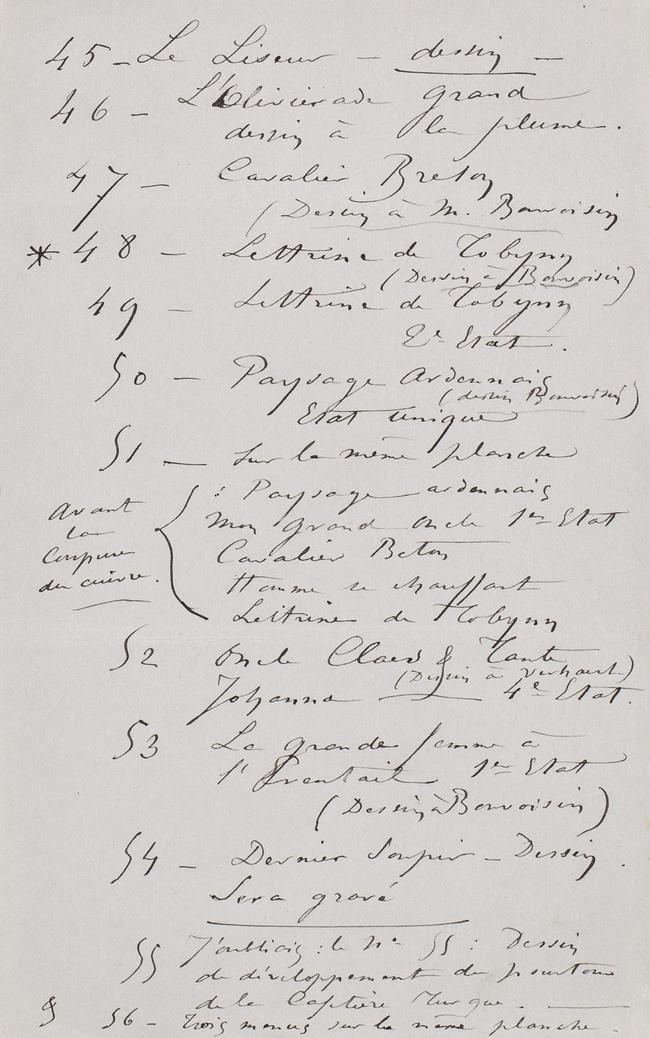 45 - Le Liseur - dessin -
46 - L'Olivierade grand
dessin à la plume.
47 - Cavalier Breton
(Dessin à M. Bonvoisin
* 48 - Lettrine de Tobynn
(Dessin à Bonvoisin)
49 - Lettrine de Tobynn
2e Etat.
50 - Paysage Ardennais
(dessin Bonvoisin)
Etat unique
51 - Sur la même planche
Avant
la
Coupure
du cuivre.
: Paysage ardennais
mon grand oncle 1er Etat
Cavalier Breton
Homme se chauffant
Lettrine de Tobynn
52 Oncle Claes & Tante
(Dessin à Verhaert)
Johanna - 4e Etat.
53 La grande femme à
l'Eventail 1er Etat
(Dessin à Bonvoisin)
54 - Dernier Soupir - Dessin.
Sera gravé
55 J'oubliais : le No 55 : Dessin
de développement du pourtour
de la Cafetière Turque. -
& 56 - Trois menus sur la même planche.